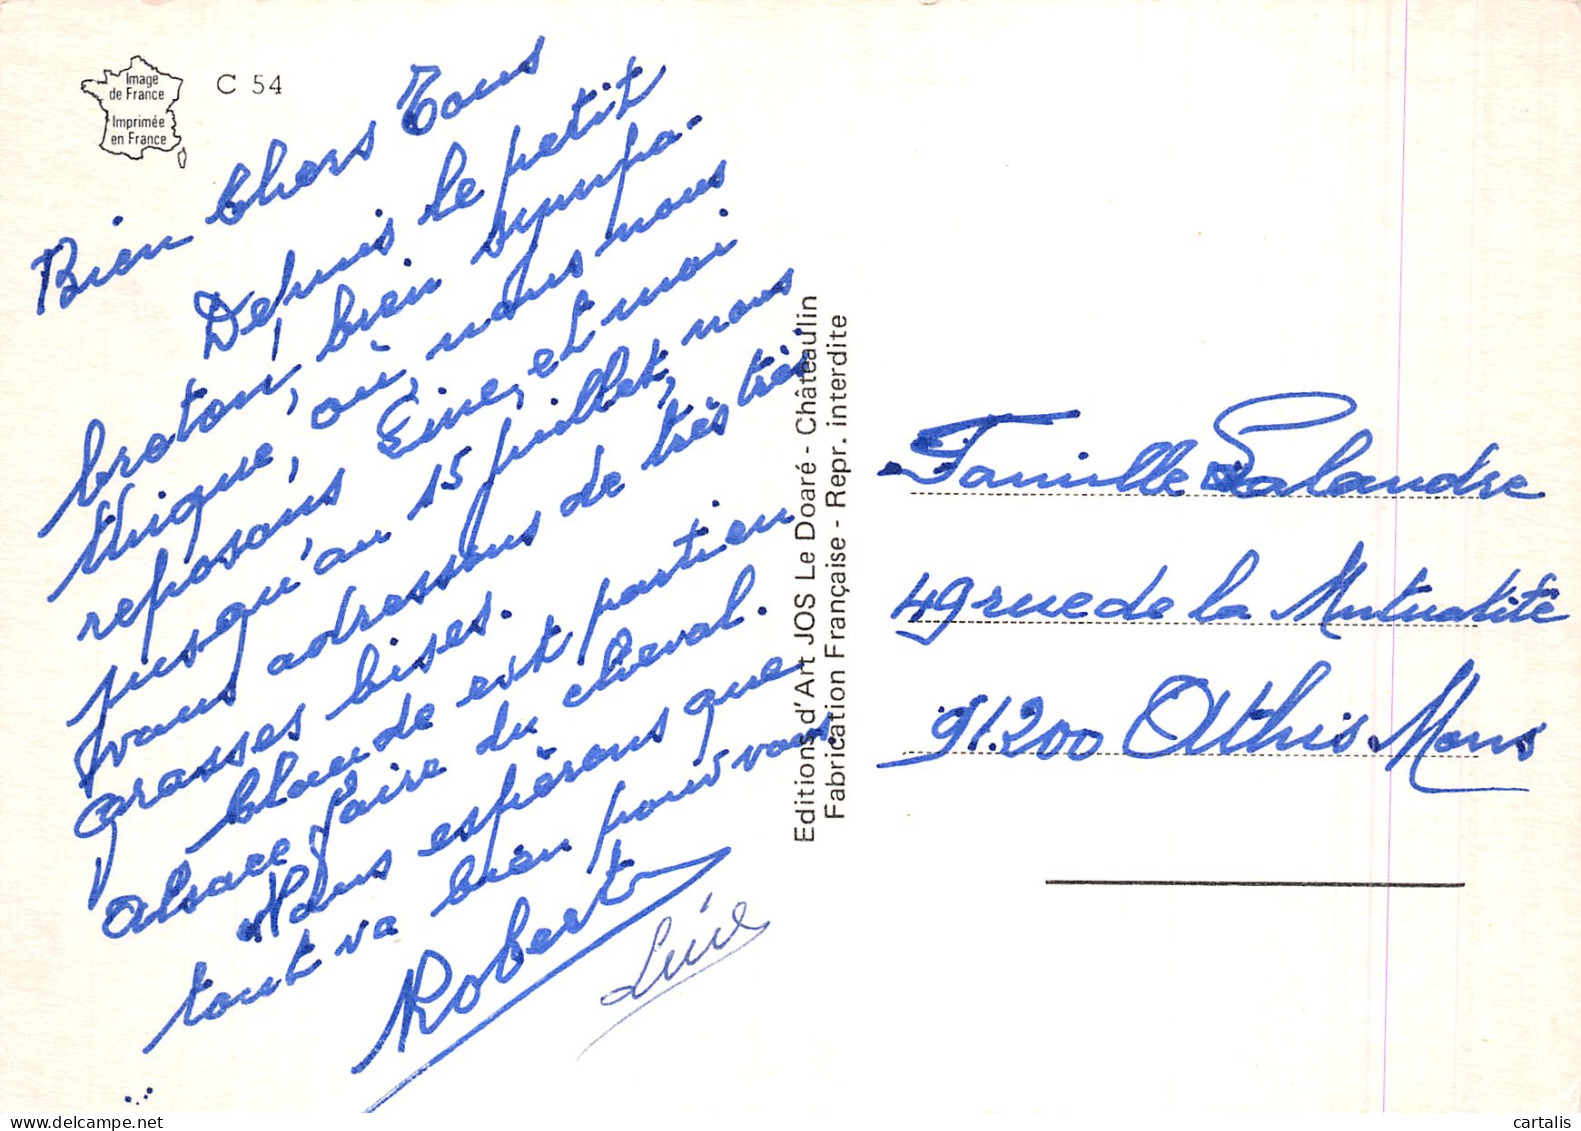 Image
de France
Imprimée
en France
C 54
Bien Chers Tous
Depuis le petit
breton, bien sympa-
thique, où, nous nous
reposons Line, et moi
jusqu'au 15 juillet, nous
vous adressons de très très
grosses bises.
Claude est parti en
Alsace faire du cheval.
Nous espérons que
tout va bien pour vous.
Robert
Editions d'Art JOS Le Doaré - Châteaulin
Fabrication Française - Repr. interdite
Famille Lalandre
49 rue de la Mutualité
91.200 Athis Mons
www.cartolis.net
cartalis